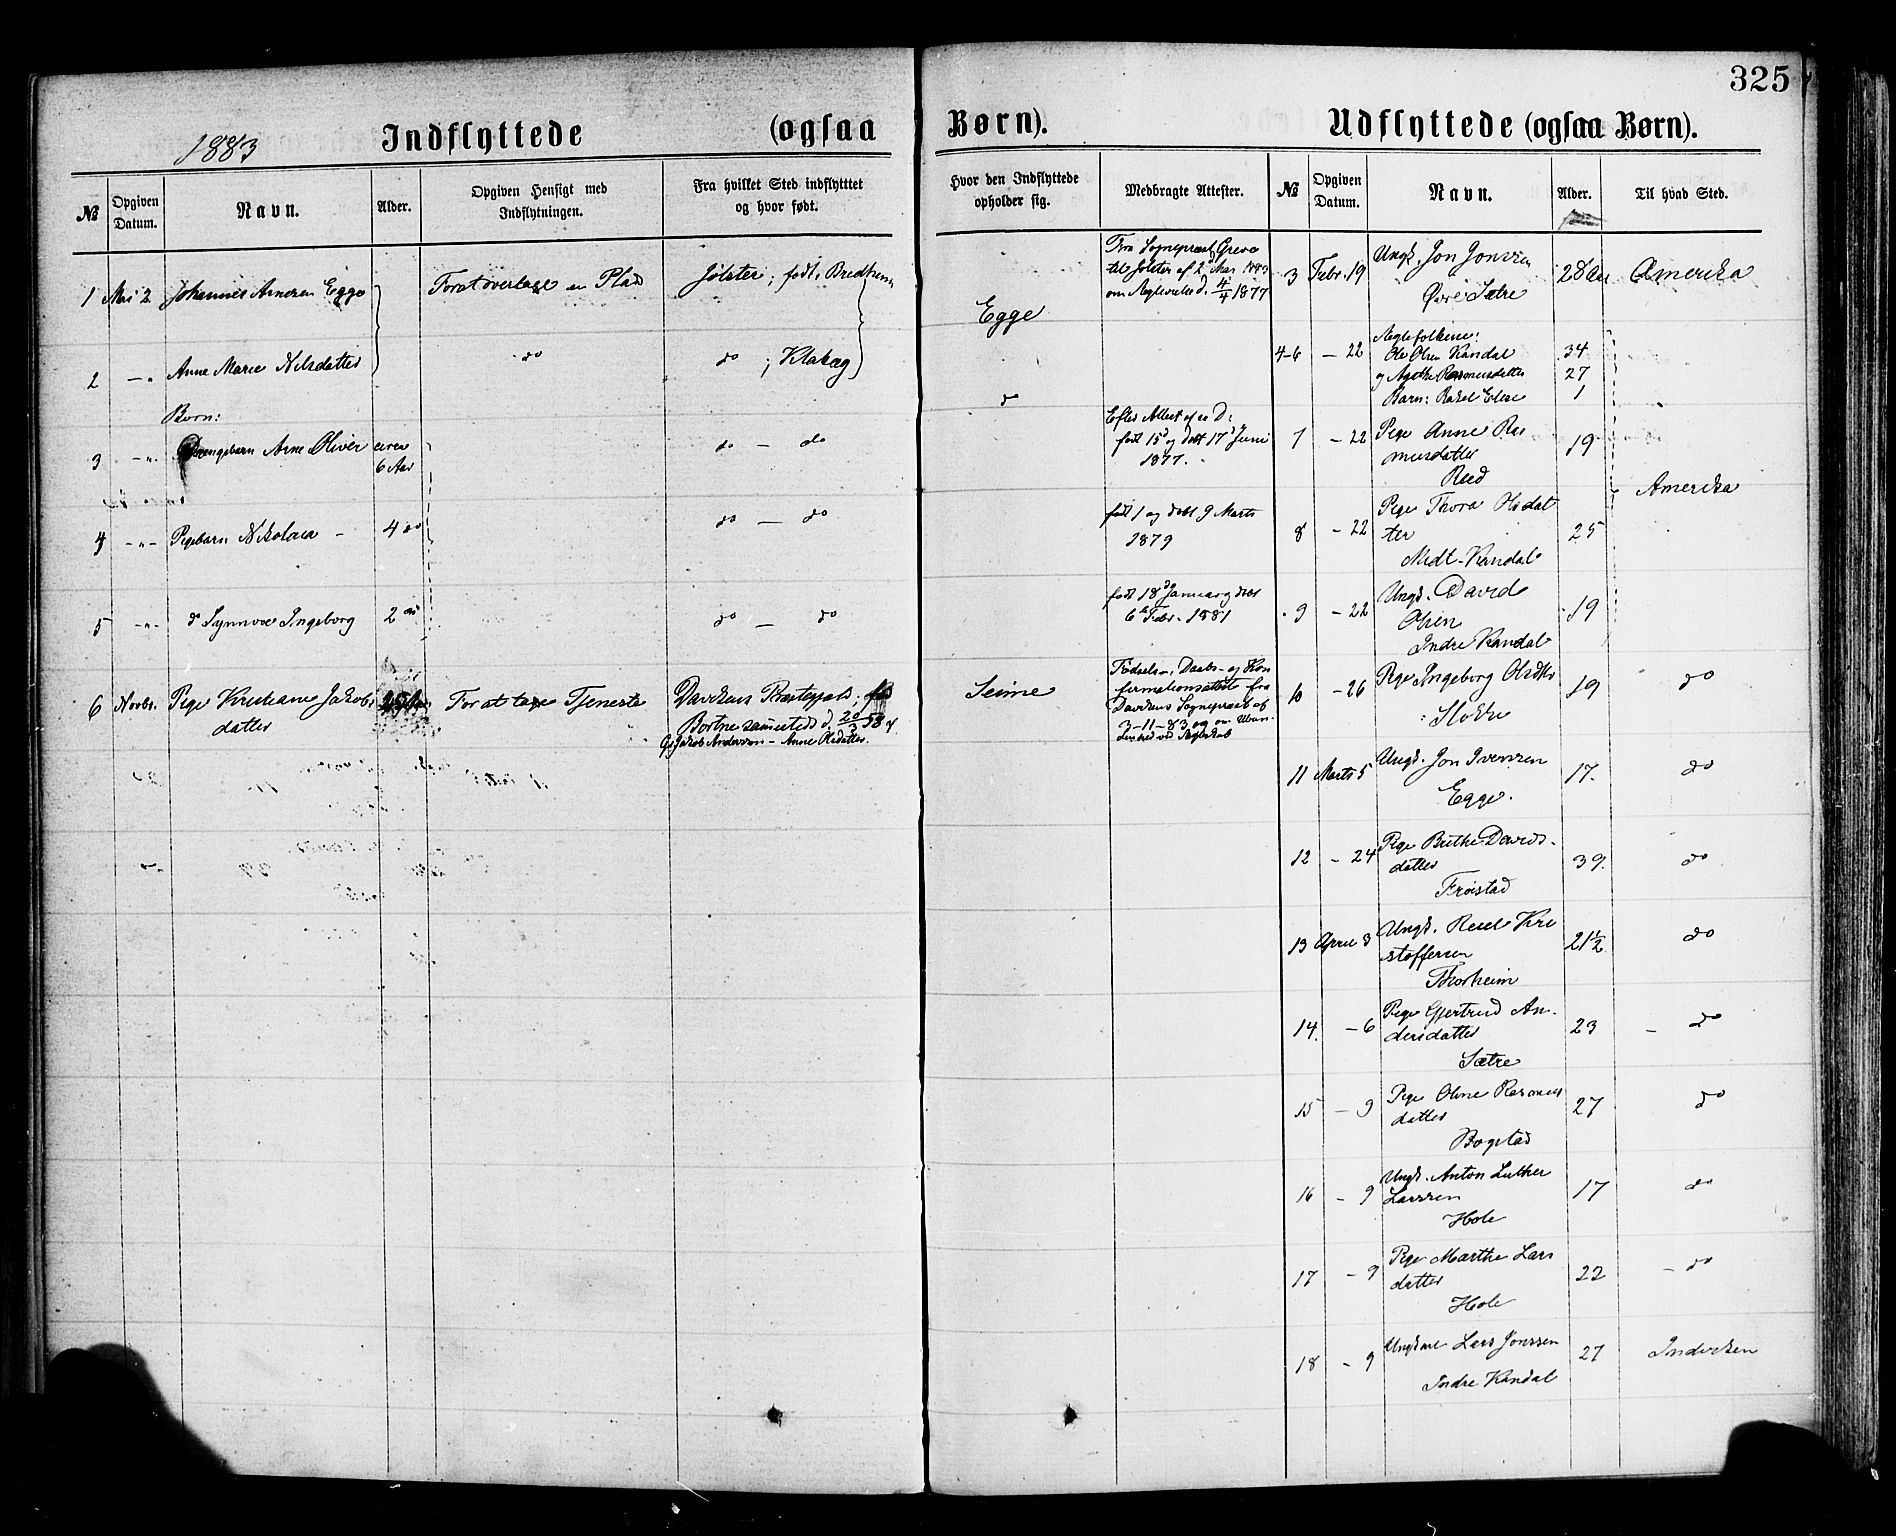 325
1883
Indflyttede (ogsaa Børn).
Udflyttede (ogsaa Børn).
№ Opgiven Datum. Navn. Alder. Opgiven Hensigt med Indflytningen. Fra hvilket Sted indflytttet og hvor født. Hvor den Indflyttede opholder sig. Medbragte Attester.
1 Mai 2 Johannes Arnesen Egge For at overtage en Plads Jølster, født Bredheim Egge Fra Sognepræst Greve
til Jølster af 2 Mai 1883
om Ægtevielse d. 4/4 1877
2 — " Anne Marie Nilsdatter do do ; Klakæg do
Børn:
3 — " Drengebarn Arne Oliver circa 6 Aar do — do Efter Attest af s. D:
født 15d og døbt 17d Juni
1877.
4 — " — Pigebarn Nikolaia — 4 do do — do født 1 og døbt 9 Marts
1879
5 — " do Synnøve Ingeborg 2 do do — do født 18de Januar og døbt
6te Febr. 1881
6 Novbr. Pige Kristiane Jakobs
datter For at tage Tjeneste Davikens Præstegjæld, født
Bortne sammesteds d. 20/3 58 af
Jakob Anderssen — Anne Olsdatter. Seime Fødsels-, Daabs- og Kon
firmationsattest fra
Davikens Sognepræst af
3-11-83 og om
№ Opgiven Datum. Navn. Alder. Til hvad Sted.
3 Febr. 19 Ungk. Jon Jonssen 28 Aar Amerika
Øvre Sætre
4-6 — 22 Ægtefolkene:
Ole Olsen Kandal 34
og Agathe Rasmusdatter 27
Barn: Rakel Elise 1
7 — 22 Pige Anne Ras
musdatter 19
Reed
Amerika
8 — 22 Pige Thora Olsdat
ter 25
Midt-Kandal
9 — 22 Ungk. David
Olsen 19
Indre Kandal
10 — 26 Pige Ingeborg Olsdtr 19 do
11 Marts 5 Ungk. Jon Iversen 17. do
Egge.
12 — 24 Pige Brithe Davids-
datter 39. do
Frøistad
13 April 3 Ungk. Kri
stoffersen 21½ do
Thorheim
14. — 6 Pige Gjertrud An-
dersdatter 23 — do
Sætre
15 — 9 Pige Oline Rasmus
datter 27 do
Bogstad
16 — 9 Ungk. Anton Luther
Larssen 17 do
Hole
17 — 9 Pige Marthe Lars
datter 22 — do
Hole
18 — 9 Ungkarl Lars Jonssen 27
Indre Kandal